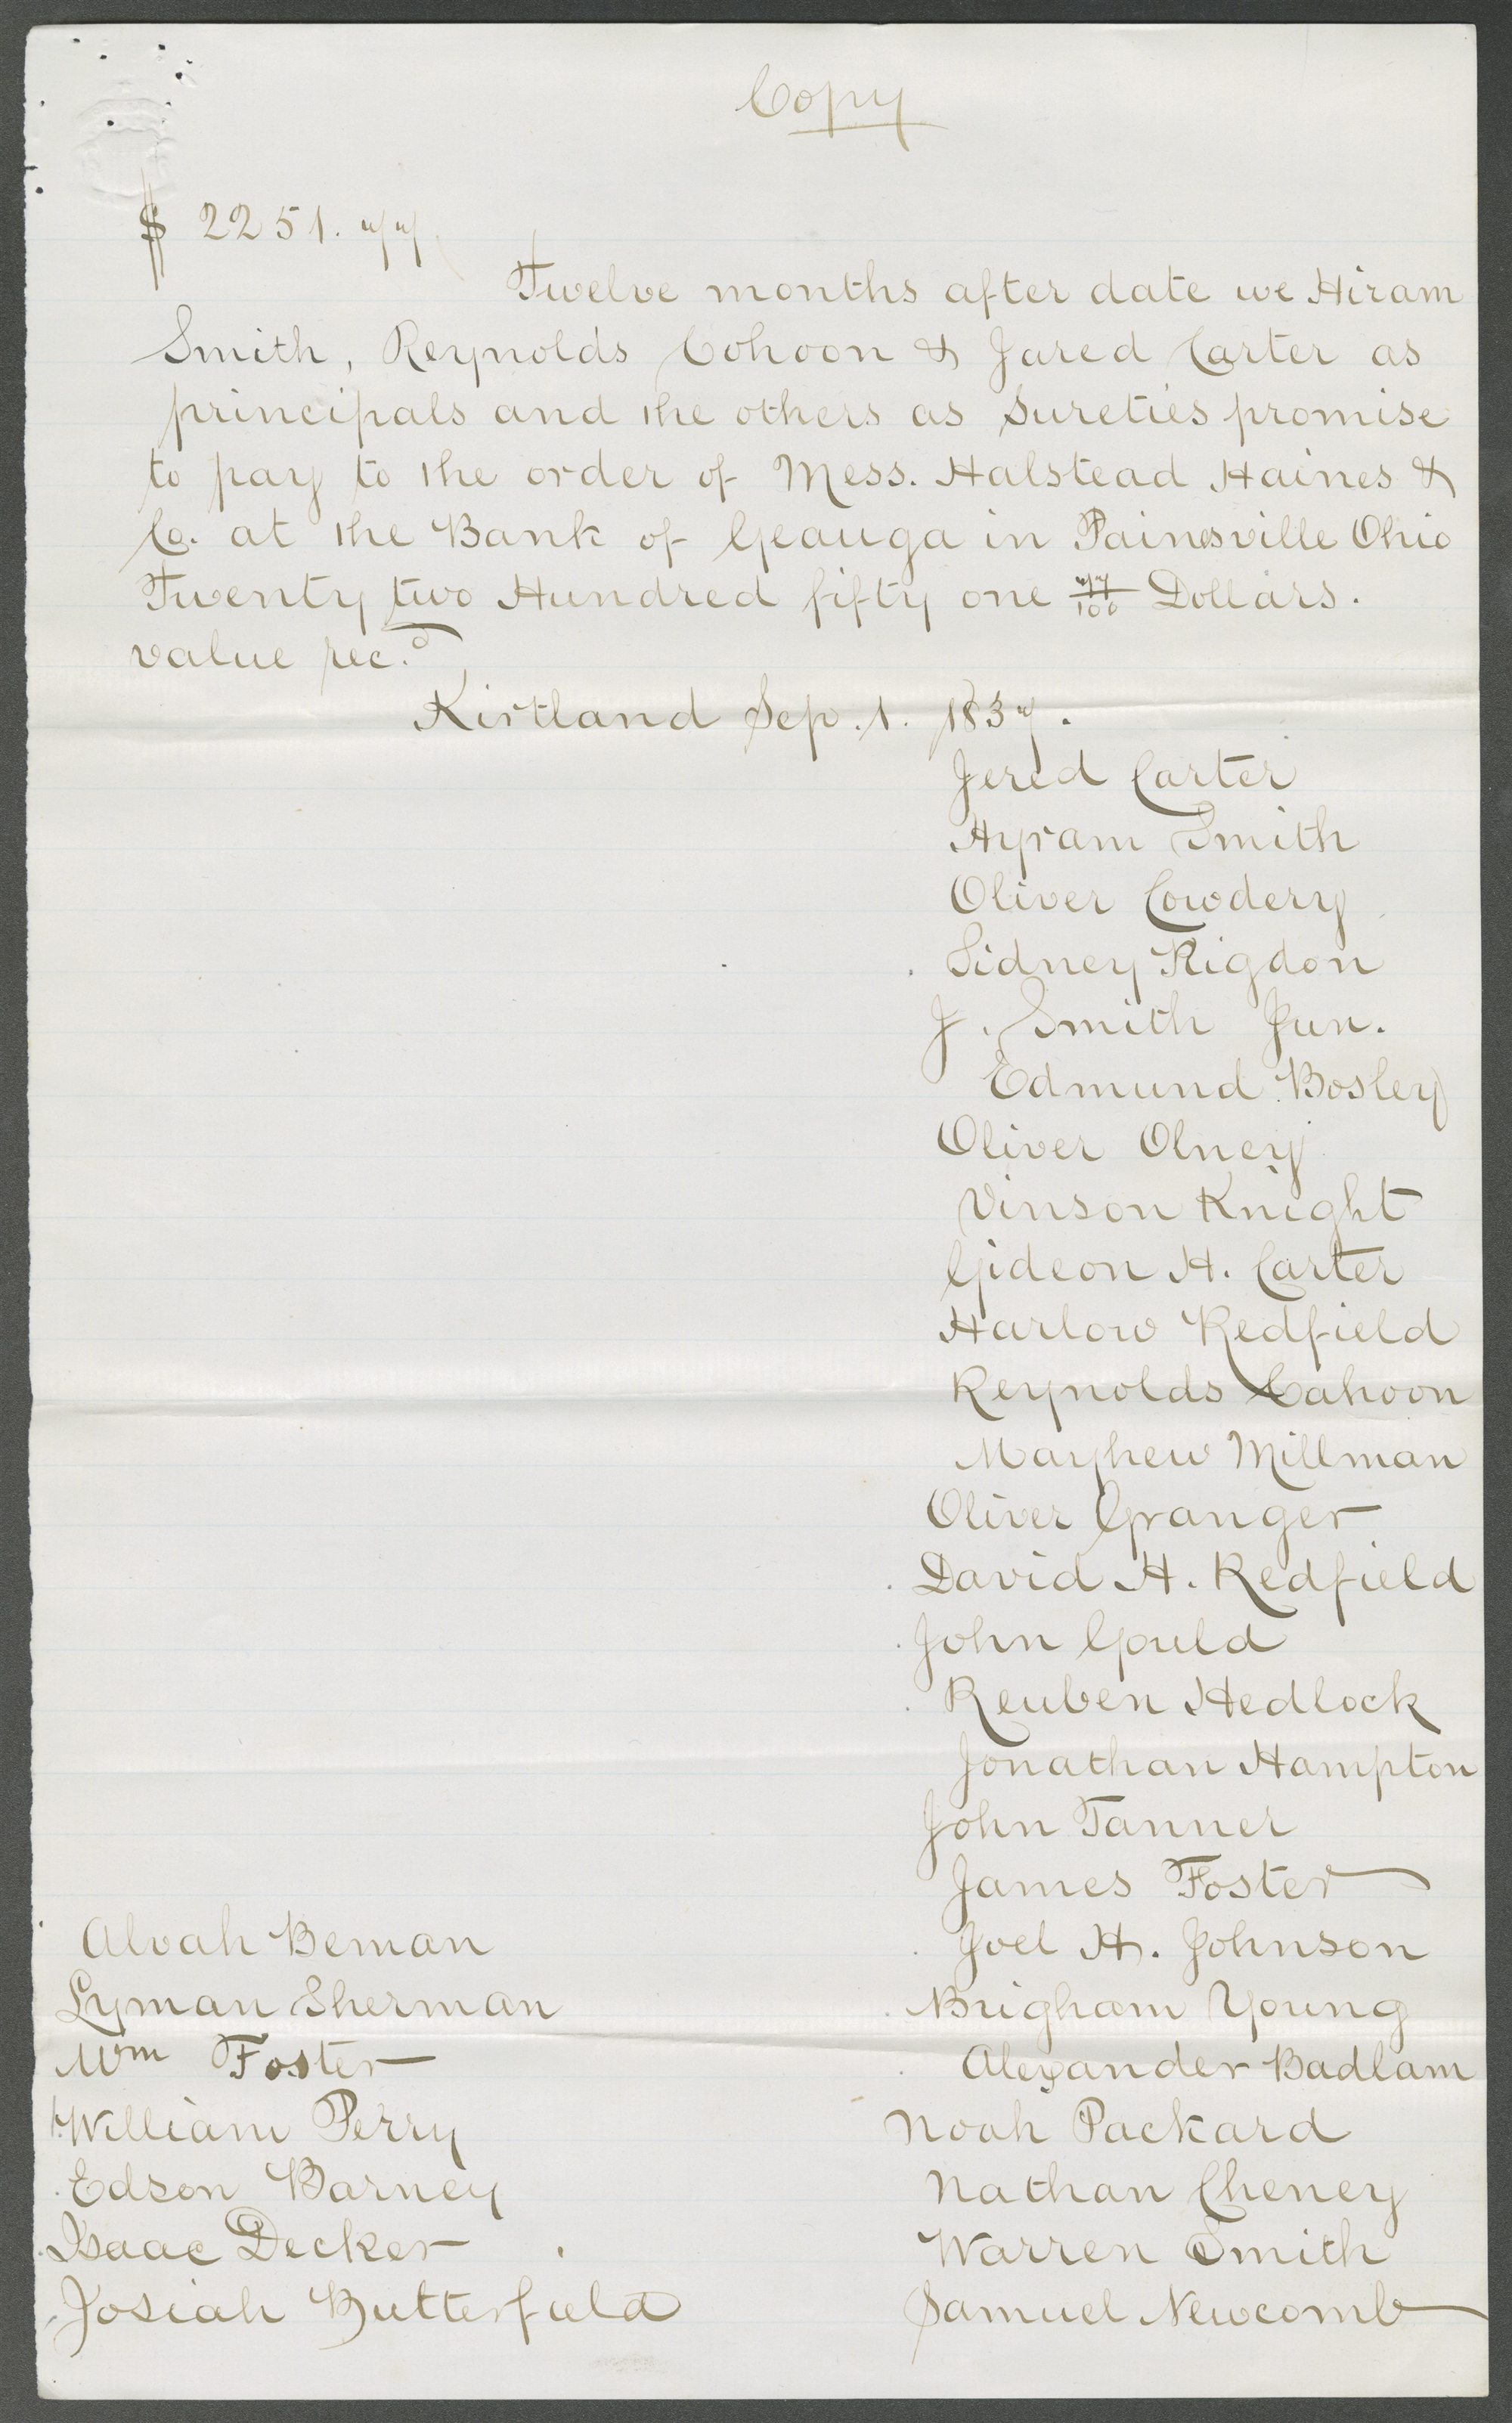 Copy
$ 2251.77
Twelve months after date we Hiram
Smith, Reynolds Cohoon & Jared Carter as
principals and the others as Sureties promise
to pay to the order of Mess. Halstead Haines &
Co. at the Bank of Geauga in Painesville Ohio
Twenty two Hundred fifty one 77/100 Dollars.
value rec.d
Kirtland Sep. 1. 1837.
Jered Carter
Hyram Smith
Oliver Cowdery
Sidney Rigdon
J. Smith Jun.
Edmund Bosley
Oliver Olney
Vinson Knight
Gideon H. Carter
Harlow Redfield
Reynolds Cahoon
Mayhew Millman
Oliver Granger
David H. Redfield
John Gould
Reuben Hedlock
Jonathan Hampton
John Tanner
James Foster
Joel H. Johnson
Brigham Young
Alexander Badlam
Noah Packard
Nathan Cheney
Warren Smith
Samuel Newcomb
Alvah Beman
Lyman Sherman
Wm Foster
William Perry
Edson Barney
Isaac Decker
Josiah Butterfield